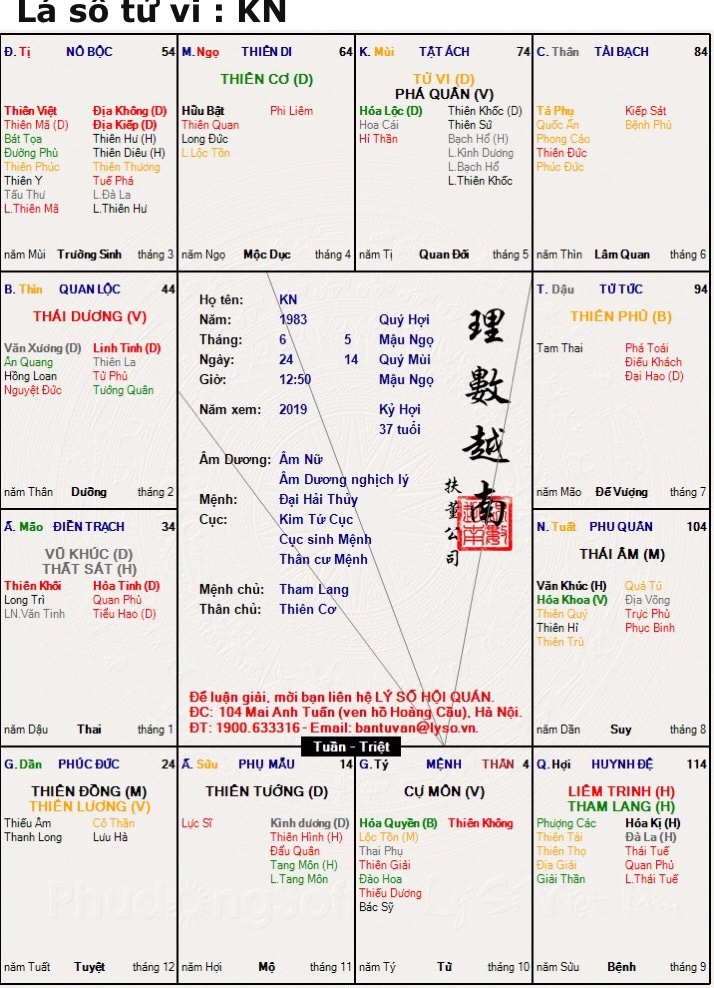 Lá số tử vi : KN
Đ. Tị NÔ BỘC 54
Thiên Việt Địa Không (D)
Thiên Mã (D) Địa Kiếp (D)
Bát Tọa Thiên Hư (H)
Đường Phù Thiên Diêu (H)
Thiên Phúc Thiên Thương
Thiên Y Tuế Phá
Tấu Thư L.Đà La
L.Thiên Mã L.Thiên Hư
năm Mùi Trường Sinh tháng 3
M. Ngọ THIÊN DI 64
THIÊN CƠ (D)
Hữu Bật Phi Liêm
Thiên Quan
Long Đức
L.Lộc Tồn
năm Ngọ Mộc Dục tháng 4
K. Mùi TẬT ÁCH 74
TỬ VI (D)
PHÁ QUÂN (V)
Hóa Lộc (D) Thiên Khốc (D)
Hoa Cái Thiên Sứ
Hỉ Thần Bạch Hổ (H)
L.Kình Dương
L.Bạch Hổ
L.Thiên Khốc
năm Tị Quan Đới tháng 5
C. Thân TÀI BẠCH 84
Tả Phụ Kiếp Sát
Quốc Ấn Bệnh Phù
Phong Cáo
Thiên Đức
Phúc Đức
năm Thìn Lâm Quan tháng 6
B. Thìn QUAN LỘC 44
THÁI DƯƠNG (V)
Văn Xương (D) Linh Tinh (D)
Ân Quang Thiên La
Hồng Loan Tử Phù
Nguyệt Đức Tướng Quân
năm Thân Dưỡng tháng 2
Họ tên: KN
Năm: 1983 Quý Hợi
Tháng: 6 5 Mậu Ngọ
Ngày: 24 14 Quý Mùi
Giờ: 12:50 Mậu Ngọ
Năm xem: 2019 Kỷ Hợi
37 tuổi
Âm Dương: Âm Nữ
Âm Dương nghịch lý
Mệnh: Đại Hải Thủy
Cục: Kim Tứ Cục
Cục sinh Mệnh
Thân cư Mệnh
Mệnh chủ: Tham Lang
Thân chủ: Thiên Cơ
理數越南
扶董公司
Để luận giải, mời bạn liên hệ LÝ SỐ HỘI QUÁN.
ĐC: 104 Mai Anh Tuấn (ven hồ Hoàng Cầu), Hà Nội.
ĐT: 1900.633316 - Email: bantuvan@lyso.vn.
T. Dậu TỬ TỨC 94
THIÊN PHỦ (B)
Tam Thai Phá Toái
Điếu Khách
Đại Hao (D)
năm Mão Đế Vượng tháng 7
Ấ. Mão ĐIỀN TRẠCH 34
VŨ KHÚC (D)
THẤT SÁT (H)
Thiên Khôi Hỏa Tinh (D)
Long Trì Quan Phù
LN.Văn Tinh Tiểu Hao (D)
năm Dậu Thai tháng 1
N. Tuất PHU QUÂN 104
THÁI ÂM (M)
Văn Khúc (H) Quả Tú
Hóa Khoa (V) Địa Võng
Thiên Quý Trực Phù
Thiên Hỉ Phục Binh
Thiên Trù
năm Dần Suy tháng 8
Tuần - Triệt
G. Dần PHÚC ĐỨC 24
THIÊN ĐỒNG (M)
THIÊN LƯƠNG (V)
Thiếu Âm Cô Thần
Thanh Long Lưu Hà
năm Tuất Tuyệt tháng 12
Ấ. Sửu PHỤ MẪU 14
THIÊN TƯỚNG (D)
Lực Sĩ Kình dương (D)
Thiên Hình (H)
Đẩu Quân
Tang Môn (H)
L.Tang Môn
năm Hợi Mộ tháng 11
G. Tý MỆNH THÂN 4
CỰ MÔN (V)
Hóa Quyền (B) Thiên Không
Lộc Tồn (M)
Thai Phụ
Thiên Giải
Đào Hoa
Thiếu Dương
Bác Sỹ
năm Tý Tử tháng 10
Q. Hợi HUYNH ĐỆ 114
LIÊM TRINH (H)
THAM LANG (H)
Phượng Các Hóa Kị (H)
Thiên Tài Đà La (H)
Thiên Thọ Thái Tuế
Địa Giải Quan Phủ
Giải Thần L.Thái Tuế
năm Sửu Bệnh tháng 9